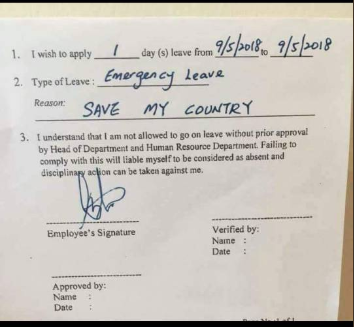 1. I wish to apply 1 day (s) leave from 9/5/2018 to 9/5/2018
2. Type of Leave : Emergency Leave
Reason: SAVE MY COUNTRY
3. I understand that I am not allowed to go on leave without prior approval
by Head of Department and Human Resource Department. Failing to
comply with this will liable myself to be considered as absent and
disciplinary action can be taken against me.
Employee's Signature
Verified by:
Name :
Date :
Approved by:
Name :
Date :